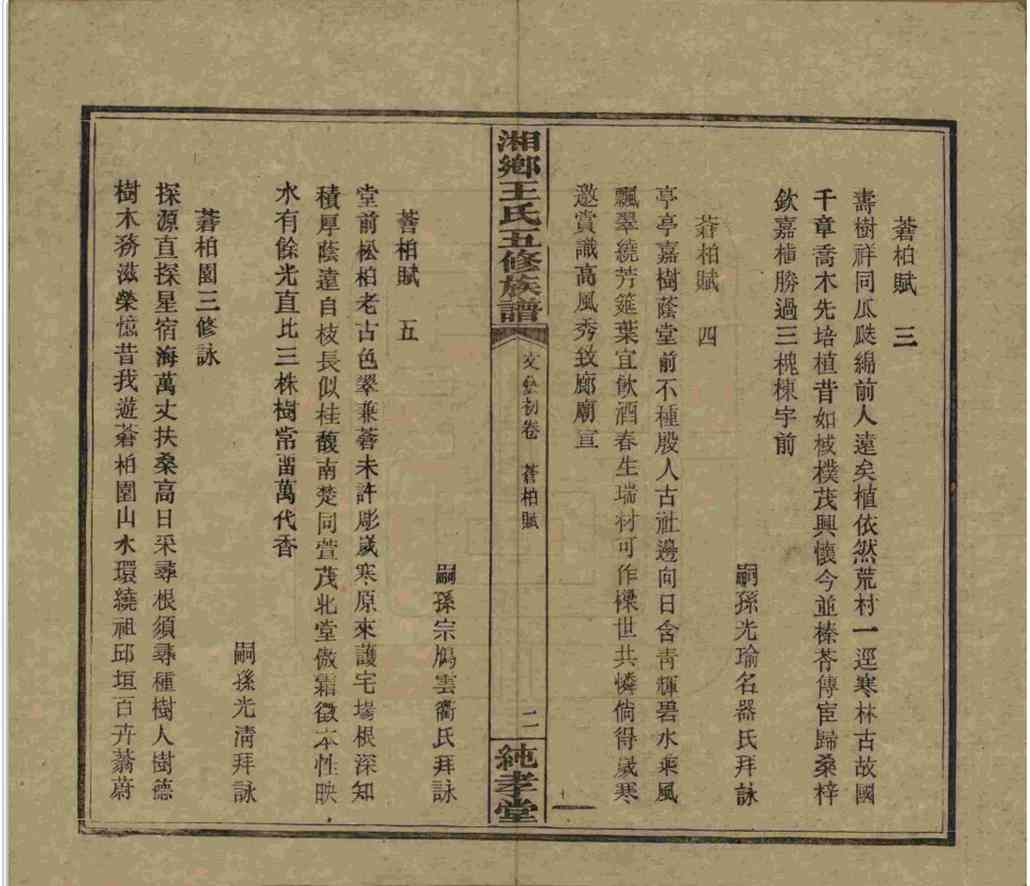 蒼柏賦　三
壽樹祥同瓜瓞綿前人遠矣植依然荒村一逕寒林古故國
千章喬木先培植昔如棫樸茂興懷今並榛苓傳宦歸桑梓
欽嘉植勝過三槐棟宇前
嗣孫光瑜名器氏拜詠
蒼柏賦　四
亭亭嘉樹蔭堂前不種殷人古社邊向日含青輝碧水乘風
飄翠繞芳筵葉宜飲酒春生瑞材可作樑世共憐倘得歲寒
邀賞識高風秀致廊廟宣
嗣孫宗鳩雲衢氏拜詠
蒼柏賦　五
堂前松柏老古色翠兼蒼未許彫歲寒原來護宅場根深知
積厚蔭遠自枝長似桂馥南楚同萱茂北堂傲霜徵本性映
水有餘光直比三株樹常畱萬代香
嗣孫光淸拜詠
蒼柏園三修詠
探源直探星宿海萬丈扶桑高日采尋根須尋種樹人樹德
樹木務滋榮憶昔我遊蒼柏園山水環繞祖邱垣百卉蓊蔚
湘鄉王氏五修族譜
文藝初卷　蒼柏賦
二
純孝堂